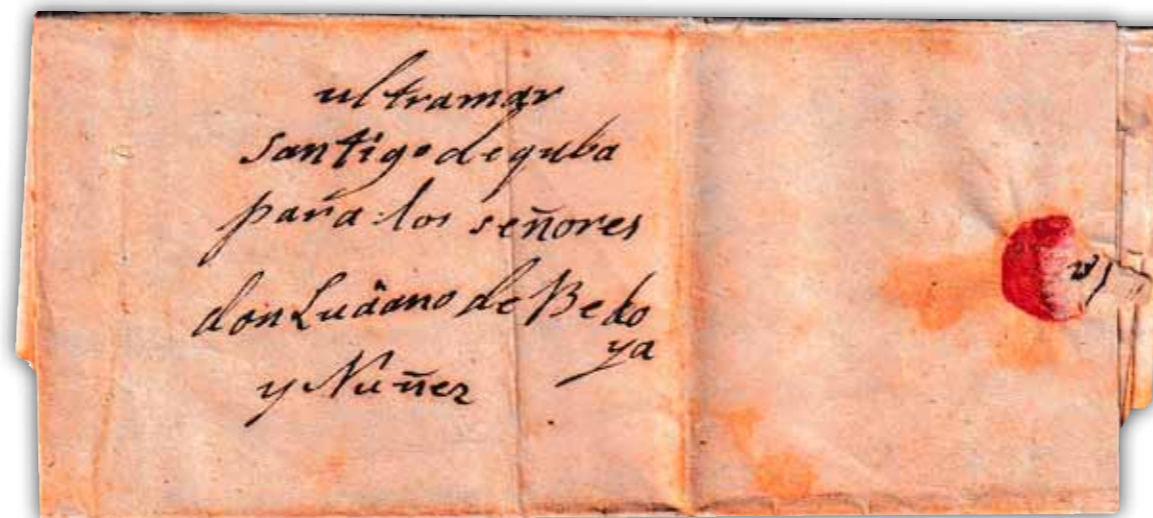 ultramar
santigo de quba
para los señores
don Luciano de Bedo
ya
y Nuñez